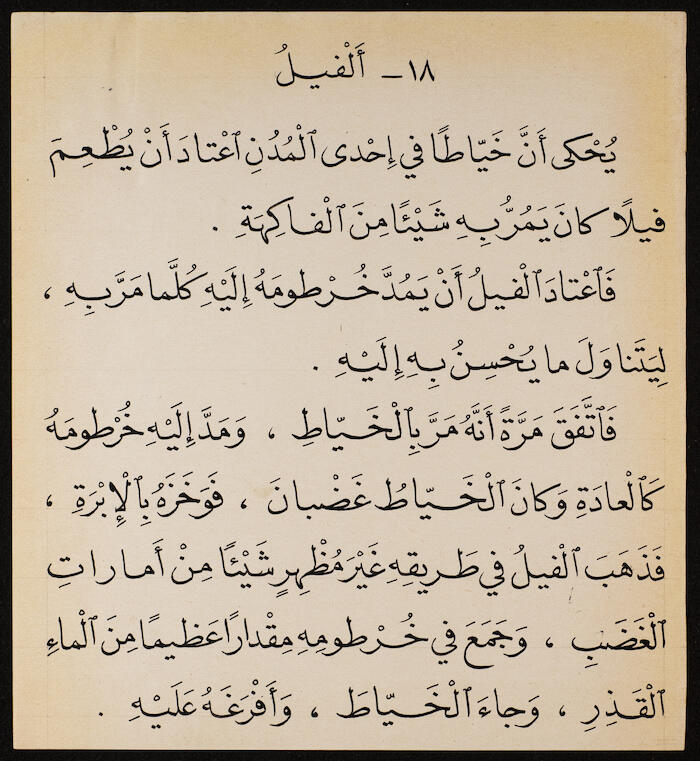 ١٨ـ أَلْفيلُ
يُحْكى أَنَّ خَيّاطًا في إِحْدى ٱلْمُدُنِ ٱعْتادَ أَنْ يُطْعِمَ
فيلًا كانَ يَمُرُّ بِهِ شَيْئًا مِنَ ٱلْفاكِهَةِ .
فَٱعْتادَ ٱلْفيلُ أَنْ يَمُدَّ خُرْطومَهُ إِلَيْهِ كُلَّما مَرَّ بِهِ ،
لِيَتَناوَلَ ما يُحْسِنُ بِهِ إِلَيْهِ .
فَٱتَّفَقَ مَرَّةً أَنَّهُ مَرَّ بِٱلْخَيّاطِ ، وَمَدَّ إِلَيْهِ خُرْطومَهُ
كَٱلْعادَةِ وَكانَ ٱلْخَيّاطُ غَضْبانَ ، فَوَخَزَهُ بِٱلْإِبْرَةِ ،
فَذَهَبَ ٱلْفيلُ في طَريقِهِ غَيْرَ مُظْهِرٍ شَيْئًا مِنْ أَماراتِ
ٱلْغَضَبِ ، وَجَمَعَ في خُرْطومِهِ مِقْدارًا عَظيمًا مِنَ ٱلْماءِ
ٱلْقَذِرِ ، وَجاءَ ٱلْخَيّاطَ ، وَأَفْرَغَهُ عَلَيْهِ .